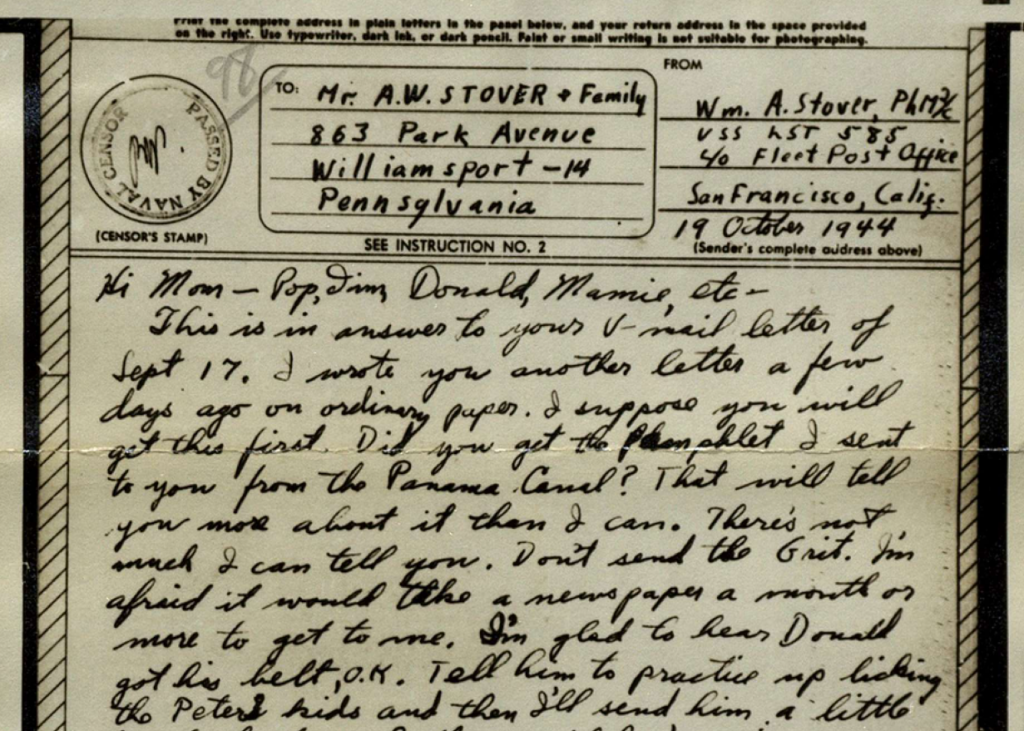 Print the complete address in plain letters in the panel below, and your return address in the space provided
on the right. Use typewriter, dark ink, or dark pencil. Faint or small writing is not suitable for photographing.
98
PASSED BY NAVAL CENSOR
(CENSOR'S STAMP)
TO:
Mr. A.W. STOVER + Family
863 Park Avenue
Williamsport -14
Pennsylvania
SEE INSTRUCTION NO. 2
FROM
Wm. A. Stover, PhM2/c
USS LST 585
c/o Fleet Post Office
San Francisco, Calif.
19 October 1944
(Sender's complete address above)
Hi Mom - Pop, Jim, Donald, Mamie, etc -
This is in answer to your V-mail letter of
Sept 17. I wrote you another letter a few
days ago on ordinary paper. I suppose you will
get this first. Did you get the Pamphlet I sent
to you from the Panama Canal? That will tell
you more about it than I can. There's not
much I can tell you. Don't send the Grit. I'm
afraid it would take a newspaper a month or
more to get to me. I'm glad to hear Donald
got his belt, O.K. Tell him to practice up licking
the Peters kids and then I'll send him a little